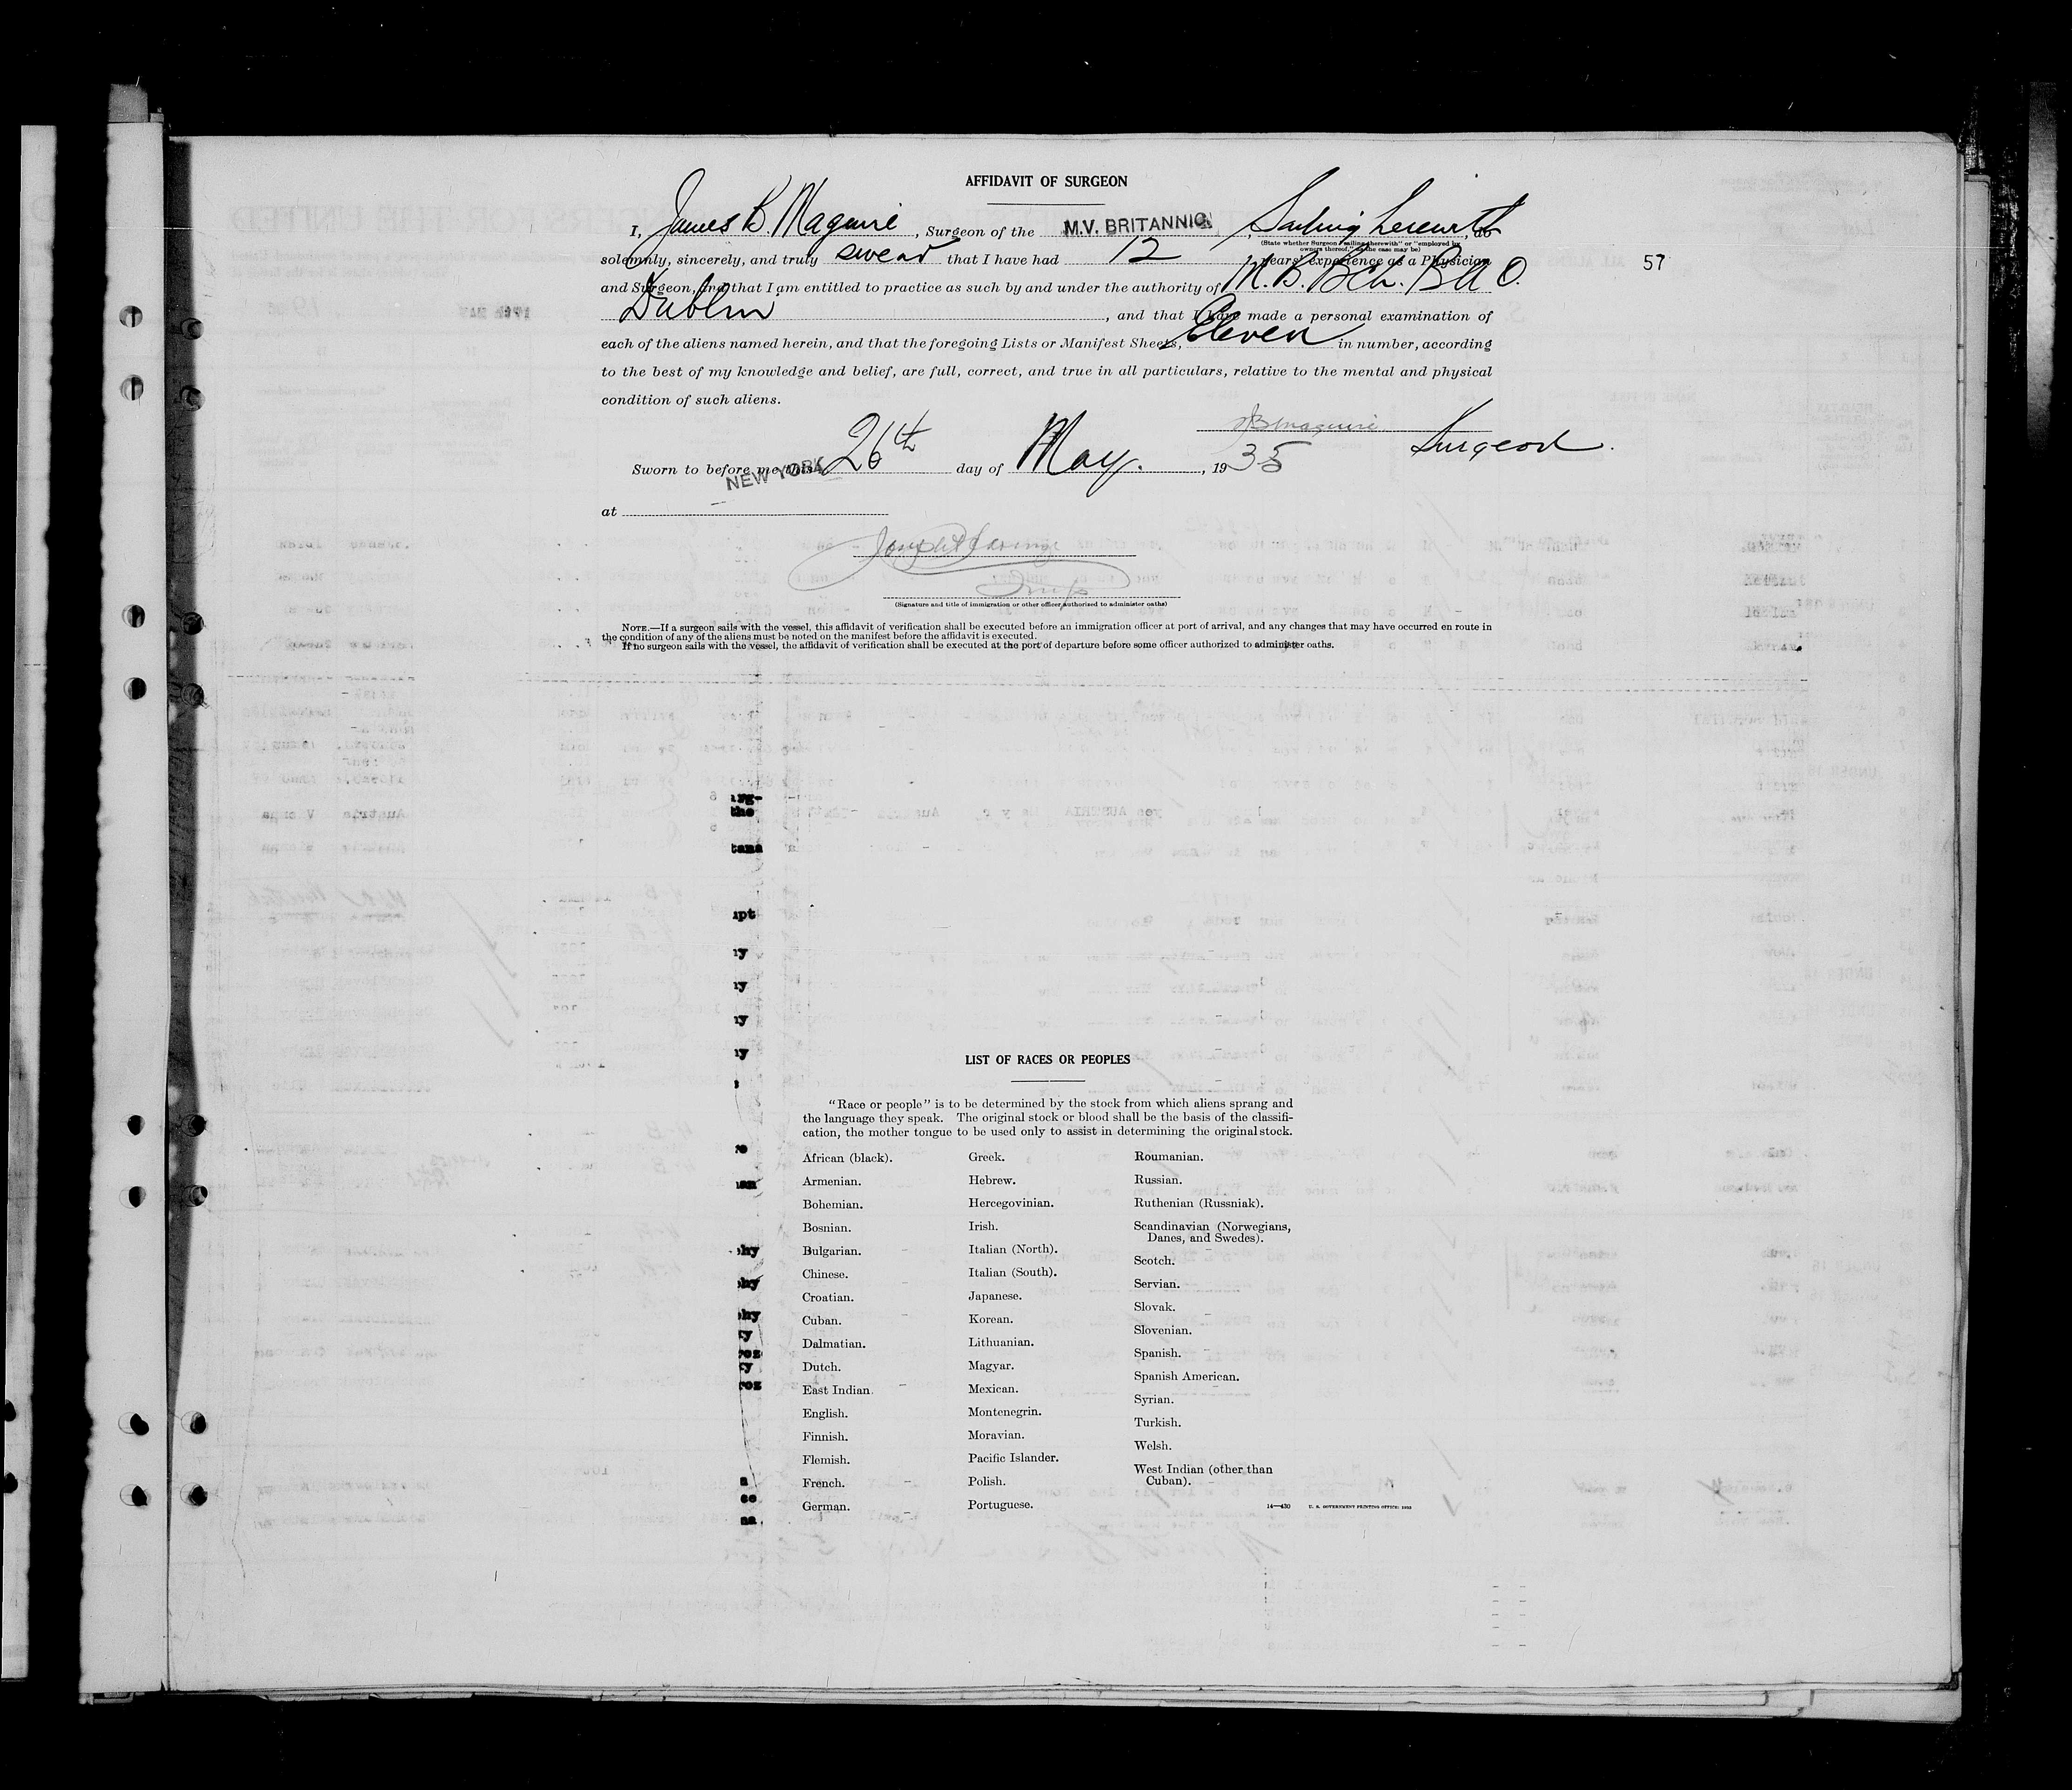 AFFIDAVIT OF SURGEON
I, James B. Maguire, Surgeon of the M.V. BRITANNIC, Sailing herewith, do
(State whether Surgeon "sailing therewith" or "employed by
owners thereof," as the case may be)
solemnly, sincerely, and truly swear that I have had 12 years' experience as a Physician
57
and Surgeon, and that I am entitled to practice as such by and under the authority of M.B. BCh. BAO.
Dublin, and that I have made a personal examination of
each of the aliens named herein, and that the foregoing Lists or Manifest Sheets, Eleven in number, according
to the best of my knowledge and belief, are full, correct, and true in all particulars, relative to the mental and physical
condition of such aliens.
JBMaguire Surgeon.
Sworn to before me this 26th day of May., 1935
NEW YORK
at
(Signature and title of immigration or other officer authorized to administer oaths)
NOTE.—If a surgeon sails with the vessel, this affidavit of verification shall be executed before an immigration officer at port of arrival, and any changes that may have occurred en route in
the condition of any of the aliens must be noted on the manifest before the affidavit is executed.
If no surgeon sails with the vessel, the affidavit of verification shall be executed at the port of departure before some officer authorized to administer oaths.
LIST OF RACES OR PEOPLES
"Race or people" is to be determined by the stock from which aliens sprang and
the language they speak. The original stock or blood shall be the basis of the classifi-
cation, the mother tongue to be used only to assist in determining the original stock.
African (black).
Armenian.
Bohemian.
Bosnian.
Bulgarian.
Chinese.
Croatian.
Cuban.
Dalmatian.
Dutch.
East Indian.
English.
Finnish.
Flemish.
French.
German.
Greek.
Hebrew.
Hercegovinian.
Irish.
Italian (North).
Italian (South).
Japanese.
Korean.
Lithuanian.
Magyar.
Mexican.
Montenegrin.
Moravian.
Pacific Islander.
Polish.
Portuguese.
Roumanian.
Russian.
Ruthenian (Russniak).
Scandinavian (Norwegians,
Danes, and Swedes).
Scotch.
Servian.
Slovak.
Slovenian.
Spanish.
Spanish American.
Syrian.
Turkish.
Welsh.
West Indian (other than
Cuban).
14—430 U. S. GOVERNMENT PRINTING OFFICE: 1933